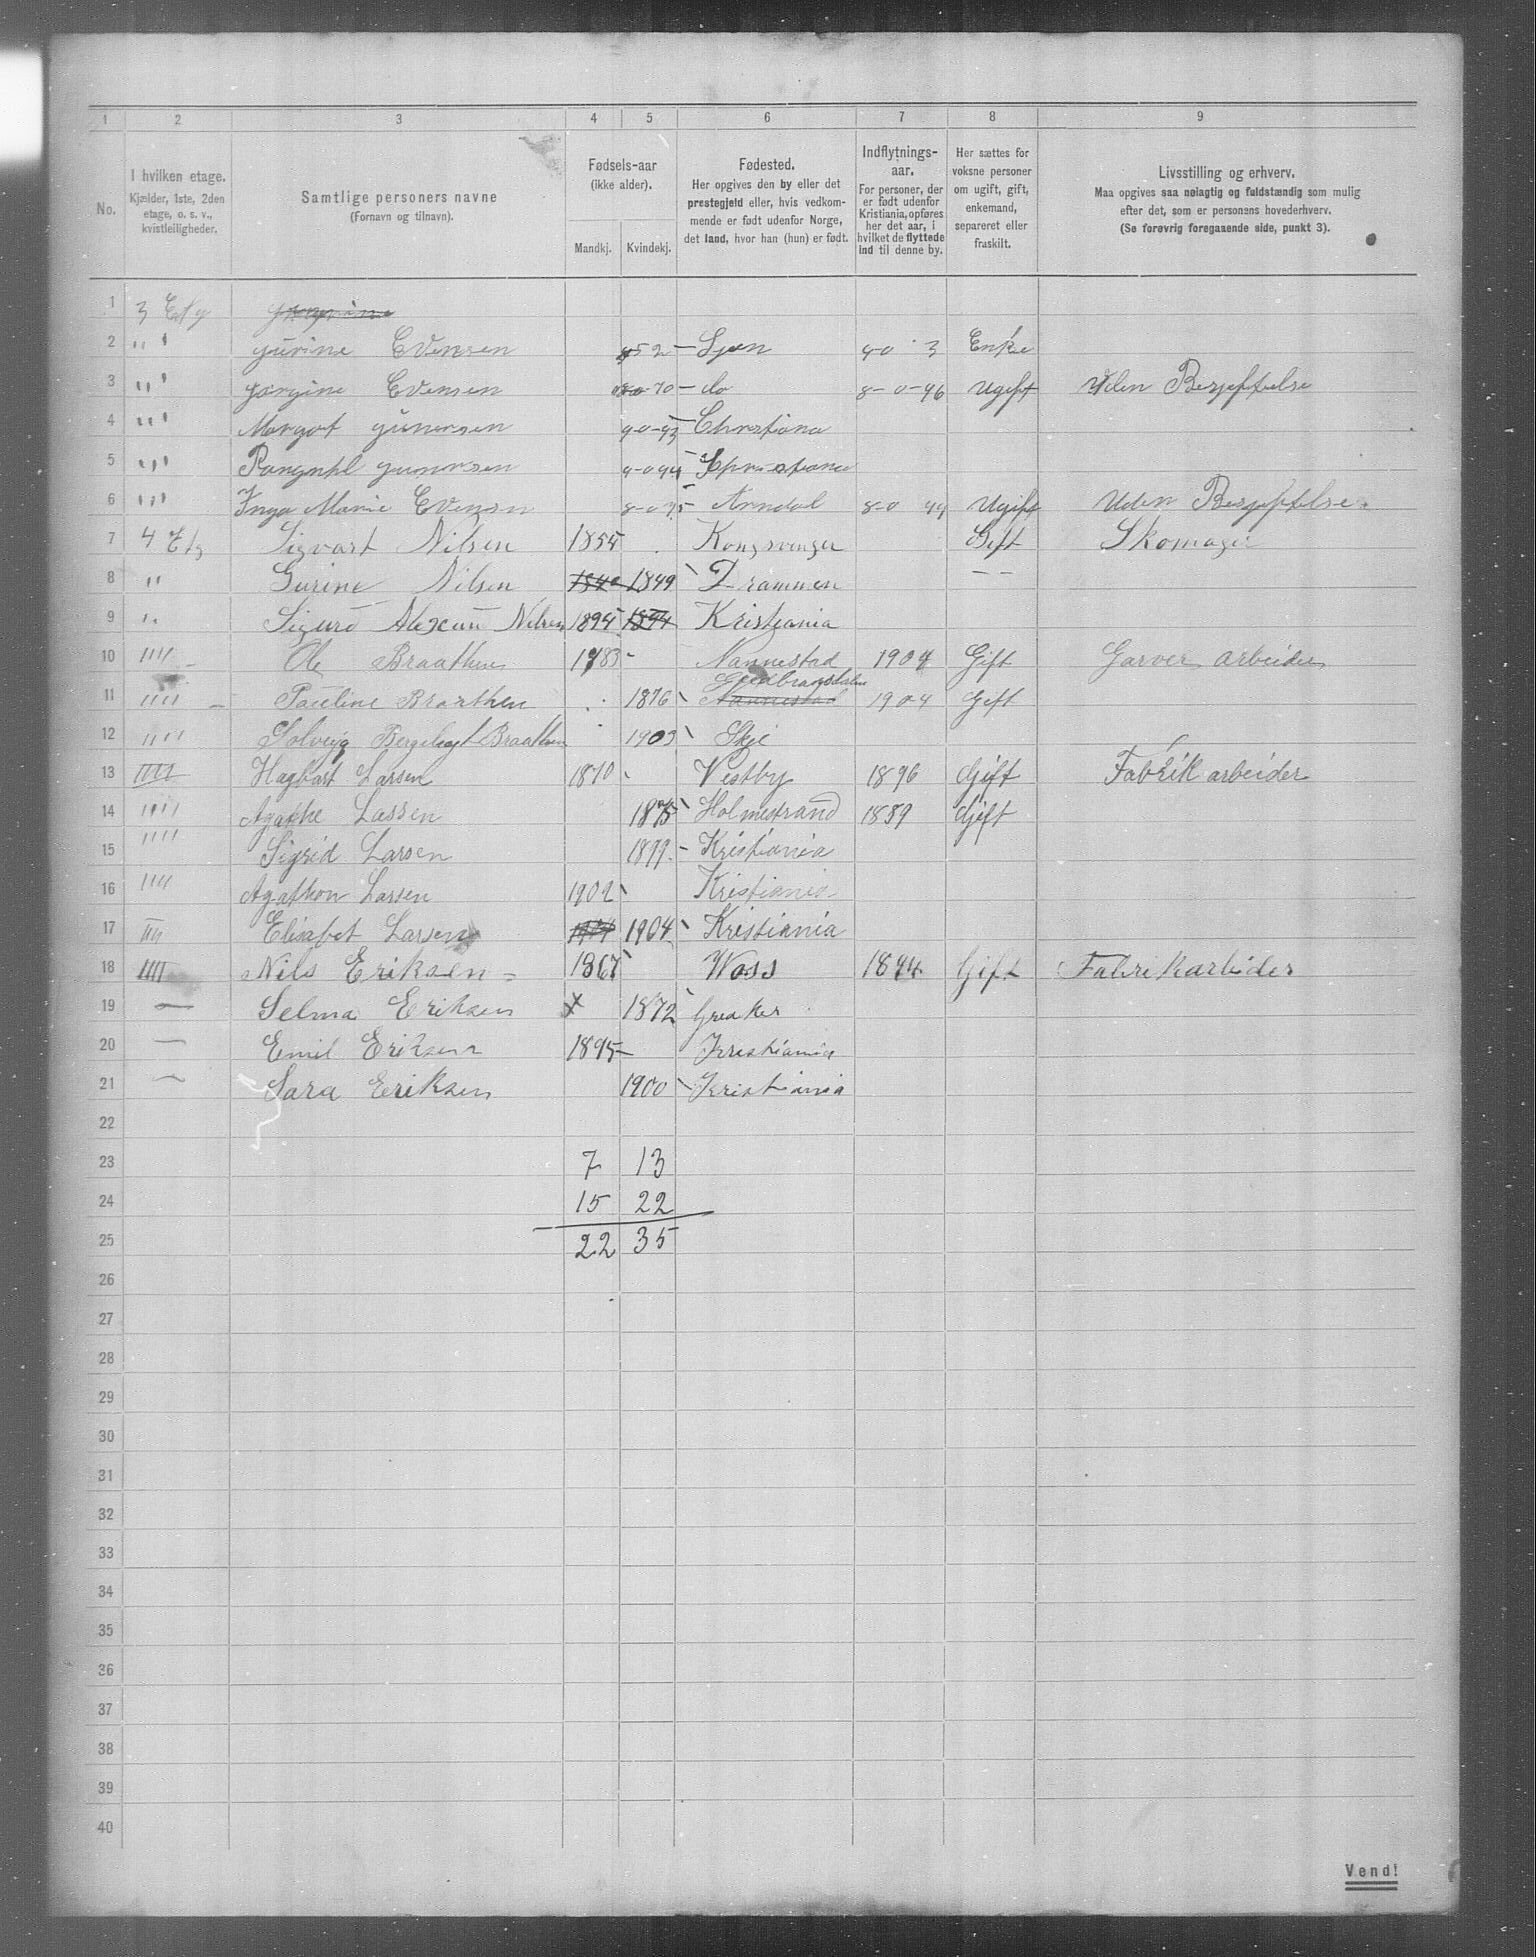 1 2 3 4 5 6 7 8 9
No.
I hvilken etage.
Kjælder, 1ste, 2den
etage, o. s. v.,
kvistleiligheder.
Samtlige personers navne
(Fornavn og tilnavn).
Fødsels-aar
(ikke alder).
Mandkj. Kvindekj.
Fødested.
Her opgives den by eller det
prestegjeld eller, hvis vedkom-
mende er født udenfor Norge,
det land, hvor han (hun) er født.
Indflytnings-
aar.
For personer, der
er født udenfor
Kristiania, opføres
her det aar, i
hvilket de flyttede
ind til denne by.
Her sættes for
voksne personer
om ugift, gift,
enkemand,
separeret eller
fraskilt.
Livsstilling og erhverv.
Maa opgives saa nøiagtig og fuldstændig som mulig
efter det, som er personens hovederhverv.
(Se forøvrig foregaaende side, punkt 3).
1 3 Etg
2 " " gurine Evensen 52 – Enke
3 " " gorgine Evensen 70 – do 8-0-96 ugift Uden Besjeftelse
4 " " Margot gunersen 9-0-93 Christiana
5 " " gunersen
6 " " Inga Marie Evensn Arndal 8-0 99 Ugift Uden Besjeftelse.
7 4 Etg Sigvart Nilsen 1854 Kongsvinger Gift Skomager
8 " Gurine Nilsen 1840 1849 Drammen — —
9 " Sigurd Nilsen 1895 1894 Kristiania
10 " " Ole Braathen 1883 - Nannestad 1904 Gift Garver arbeider
Gudbrandsdalen
11 " " Pauline Braathen 1876 Nannestad 1904 Gift
12 " " Solveig Braathen 1903 Skje
13 " " Hagbart Larsen 1870 Vestby 1896 Gift Fabrik arbeider
14 " " Agathe Lassen 1875 Holmestrand 1889 Gift
15 " " Sigrid Larsen 1899 - Kristiania
16 " " Agathon Larsen 1902 Kristiania
17 " " Elisabet Larsen 1904 Kristiania
18 " " Nils Eriksen - 1867 Woss 1894 Gift Fabrikarbeider
19 — Selma Eriksen x 1872 Greaker
20 — Emil Eriksen 1895 – Kristiania
21 — Sara Eriksen 1900 Kristiania
22
23 7 13
24 15 22
25 22 35
26
27
28
29
30
31
32
33
34
35
36
37
38
39
40
Vend!